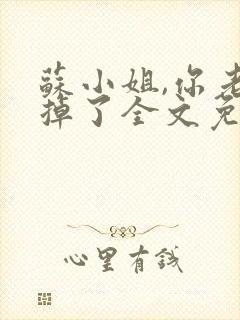 蘇小姐,你老
掉了全文免
心里有錢